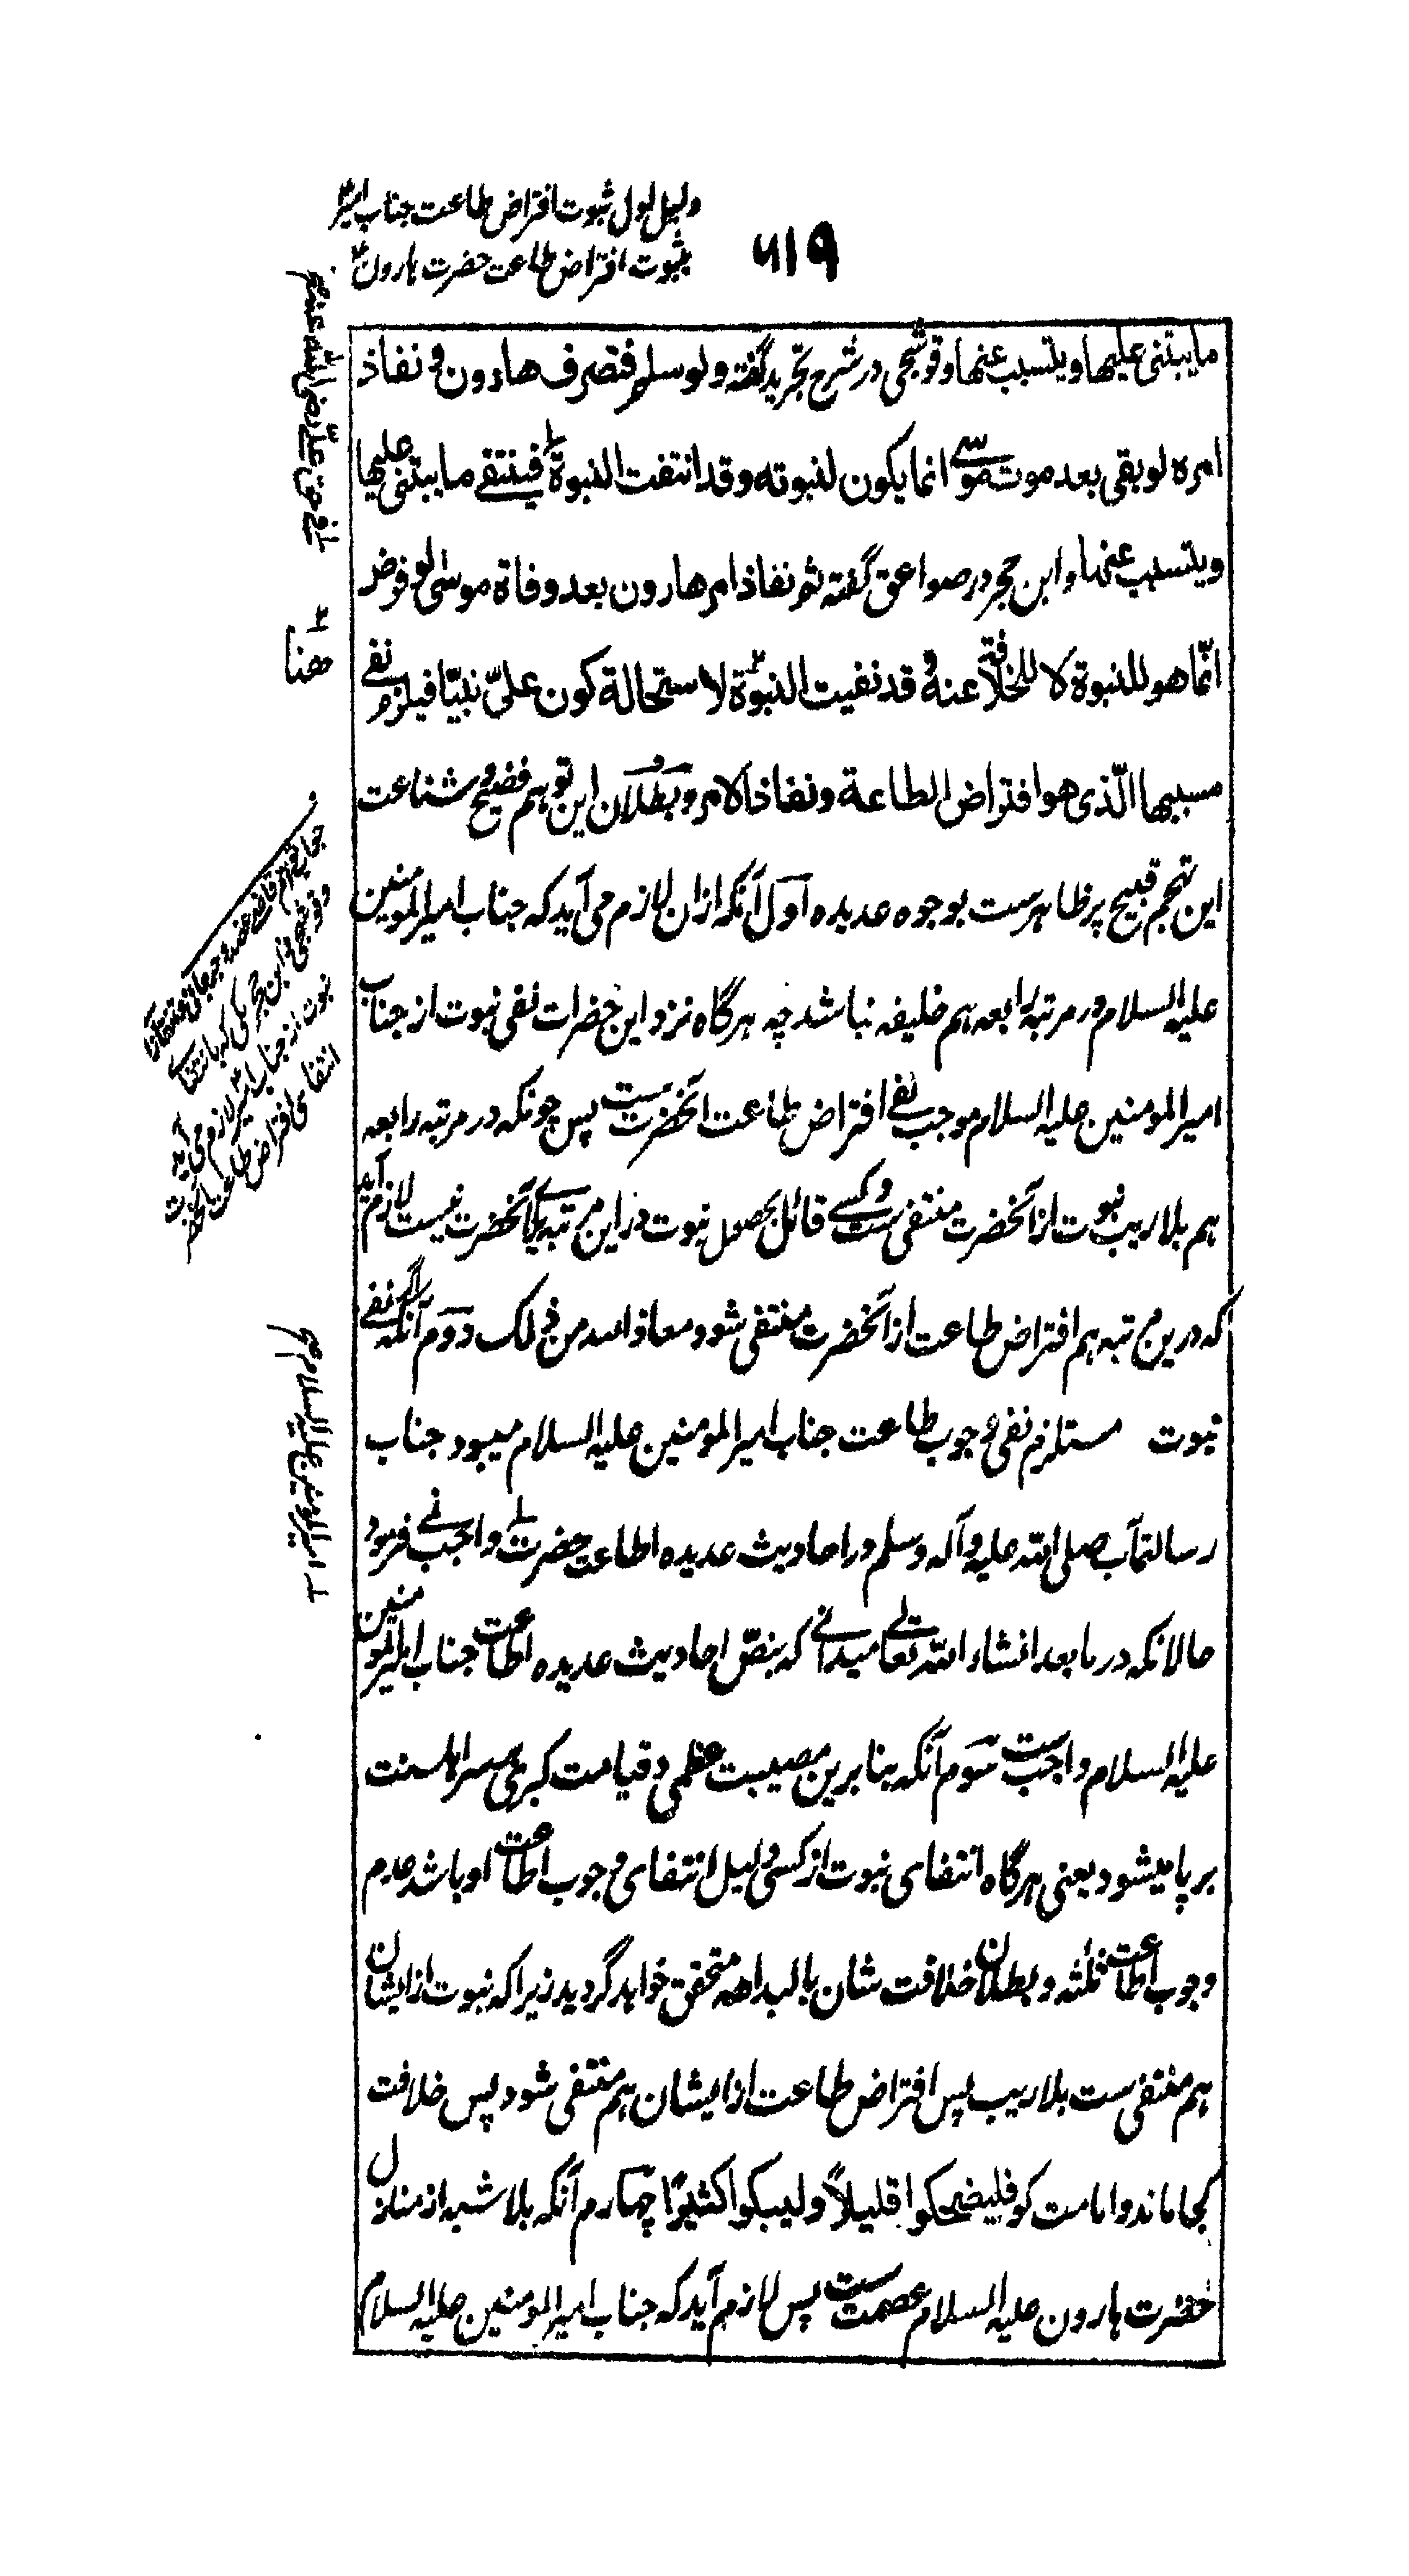 دلیل اول ثبوت افتراض طاعت جناب امیرؑ
بثبوت افتراض طاعت حضرت هارونؑ
۵۱۹
ما یبتنی علیها و یتسبب عنها و قوشجی در شرح تجرید گفته و لو سلم فتصرف هارون و نفاذ
امره لو بقی بعد موت موسی انما یکون لنبوته و قد انتفت النبوة فینتفے ما یبتنی علیها
و یتسبب عنها و ابن حجر در صواعق گفته ثم نفاذ امر هارون بعد وفاة موسی لو فرض
انّما هو للنبوة لا للخلافة عنه و قد نفیت النبوّة لاستحالة کون علیّ نبیّا فیلزم نفے
مسببها الّذی هو افتراض الطاعة و نفاذ الامر و بطلان این توهم فضیح و شناعت
این تهجم قبیح پر ظاهرست بوجوه عدیده اول آنکه ازان لازم می آید که جناب امیرالمومنین
علیه السلام در مرتبه رابعه هم خلیفه نباشد چه هرگاه نزد این حضرات نفی نبوت از جناب
امیرالمومنین علیه السلام موجب نفے افتراض طاعت آنحضرت ست پس چونکه در مرتبه رابعه
هم بلاریب نبوت از آنحضرت منتفی ست و کسے قائل بحصول نبوت در این مرتبه برای آنحضرت نیست لازم آید
که درین مرتبه هم افتراض طاعت از آنحضرت منتفی شود و معاذ الله من ذلک دوم آنکه اگر نفے
نبوت مستلزم نفی وجوب طاعت جناب امیرالمومنین علیه السلام میبود جناب
رسالتمآب صلی الله علیه و آله و سلم در احادیث عدیده اطاعت حضرت واجب نے فرمود
حالانکه در ما بعد انشاء الله تعالے میدانے که بنصّ احادیث عدیده اطاعت جناب امیرالمومنین
علیه السلام واجب ست سوم آنکه بنا برین مصیبت عظمی و قیامت کبری بر سر اهل سنت
بر پا میشود یعنی هرگاه انتفای نبوت از کسی دلیل انتفای وجوب اطاعت او باشد عدم
وجوب اطاعت ثلثه و بطلان خلافت شان بالبداهه متحقق خواهد گردید زیرا که نبوت از ایشان
هم منتفی ست بلاریب پس افتراض طاعت از ایشان هم منتفی شود پس خلافت
کجا ماند و امامت کو فلیضحکوا قلیلاً و لیبکوا کثیرًا چهارم آنکه بلا شبه از منازل
حضرت هارون علیه السلام عصمت ست پس لازم آید که جناب امیرالمومنین علیه السلام
فی حق علیّ رضی الله عنه
هنا
و قوشجی و ابن حجر مکی که بانتفاے
نبوت از جناب امیرؑ لازم می آید
انتفای افتراض طاعت آنحضرت
امیرالمومنین علیه السلام